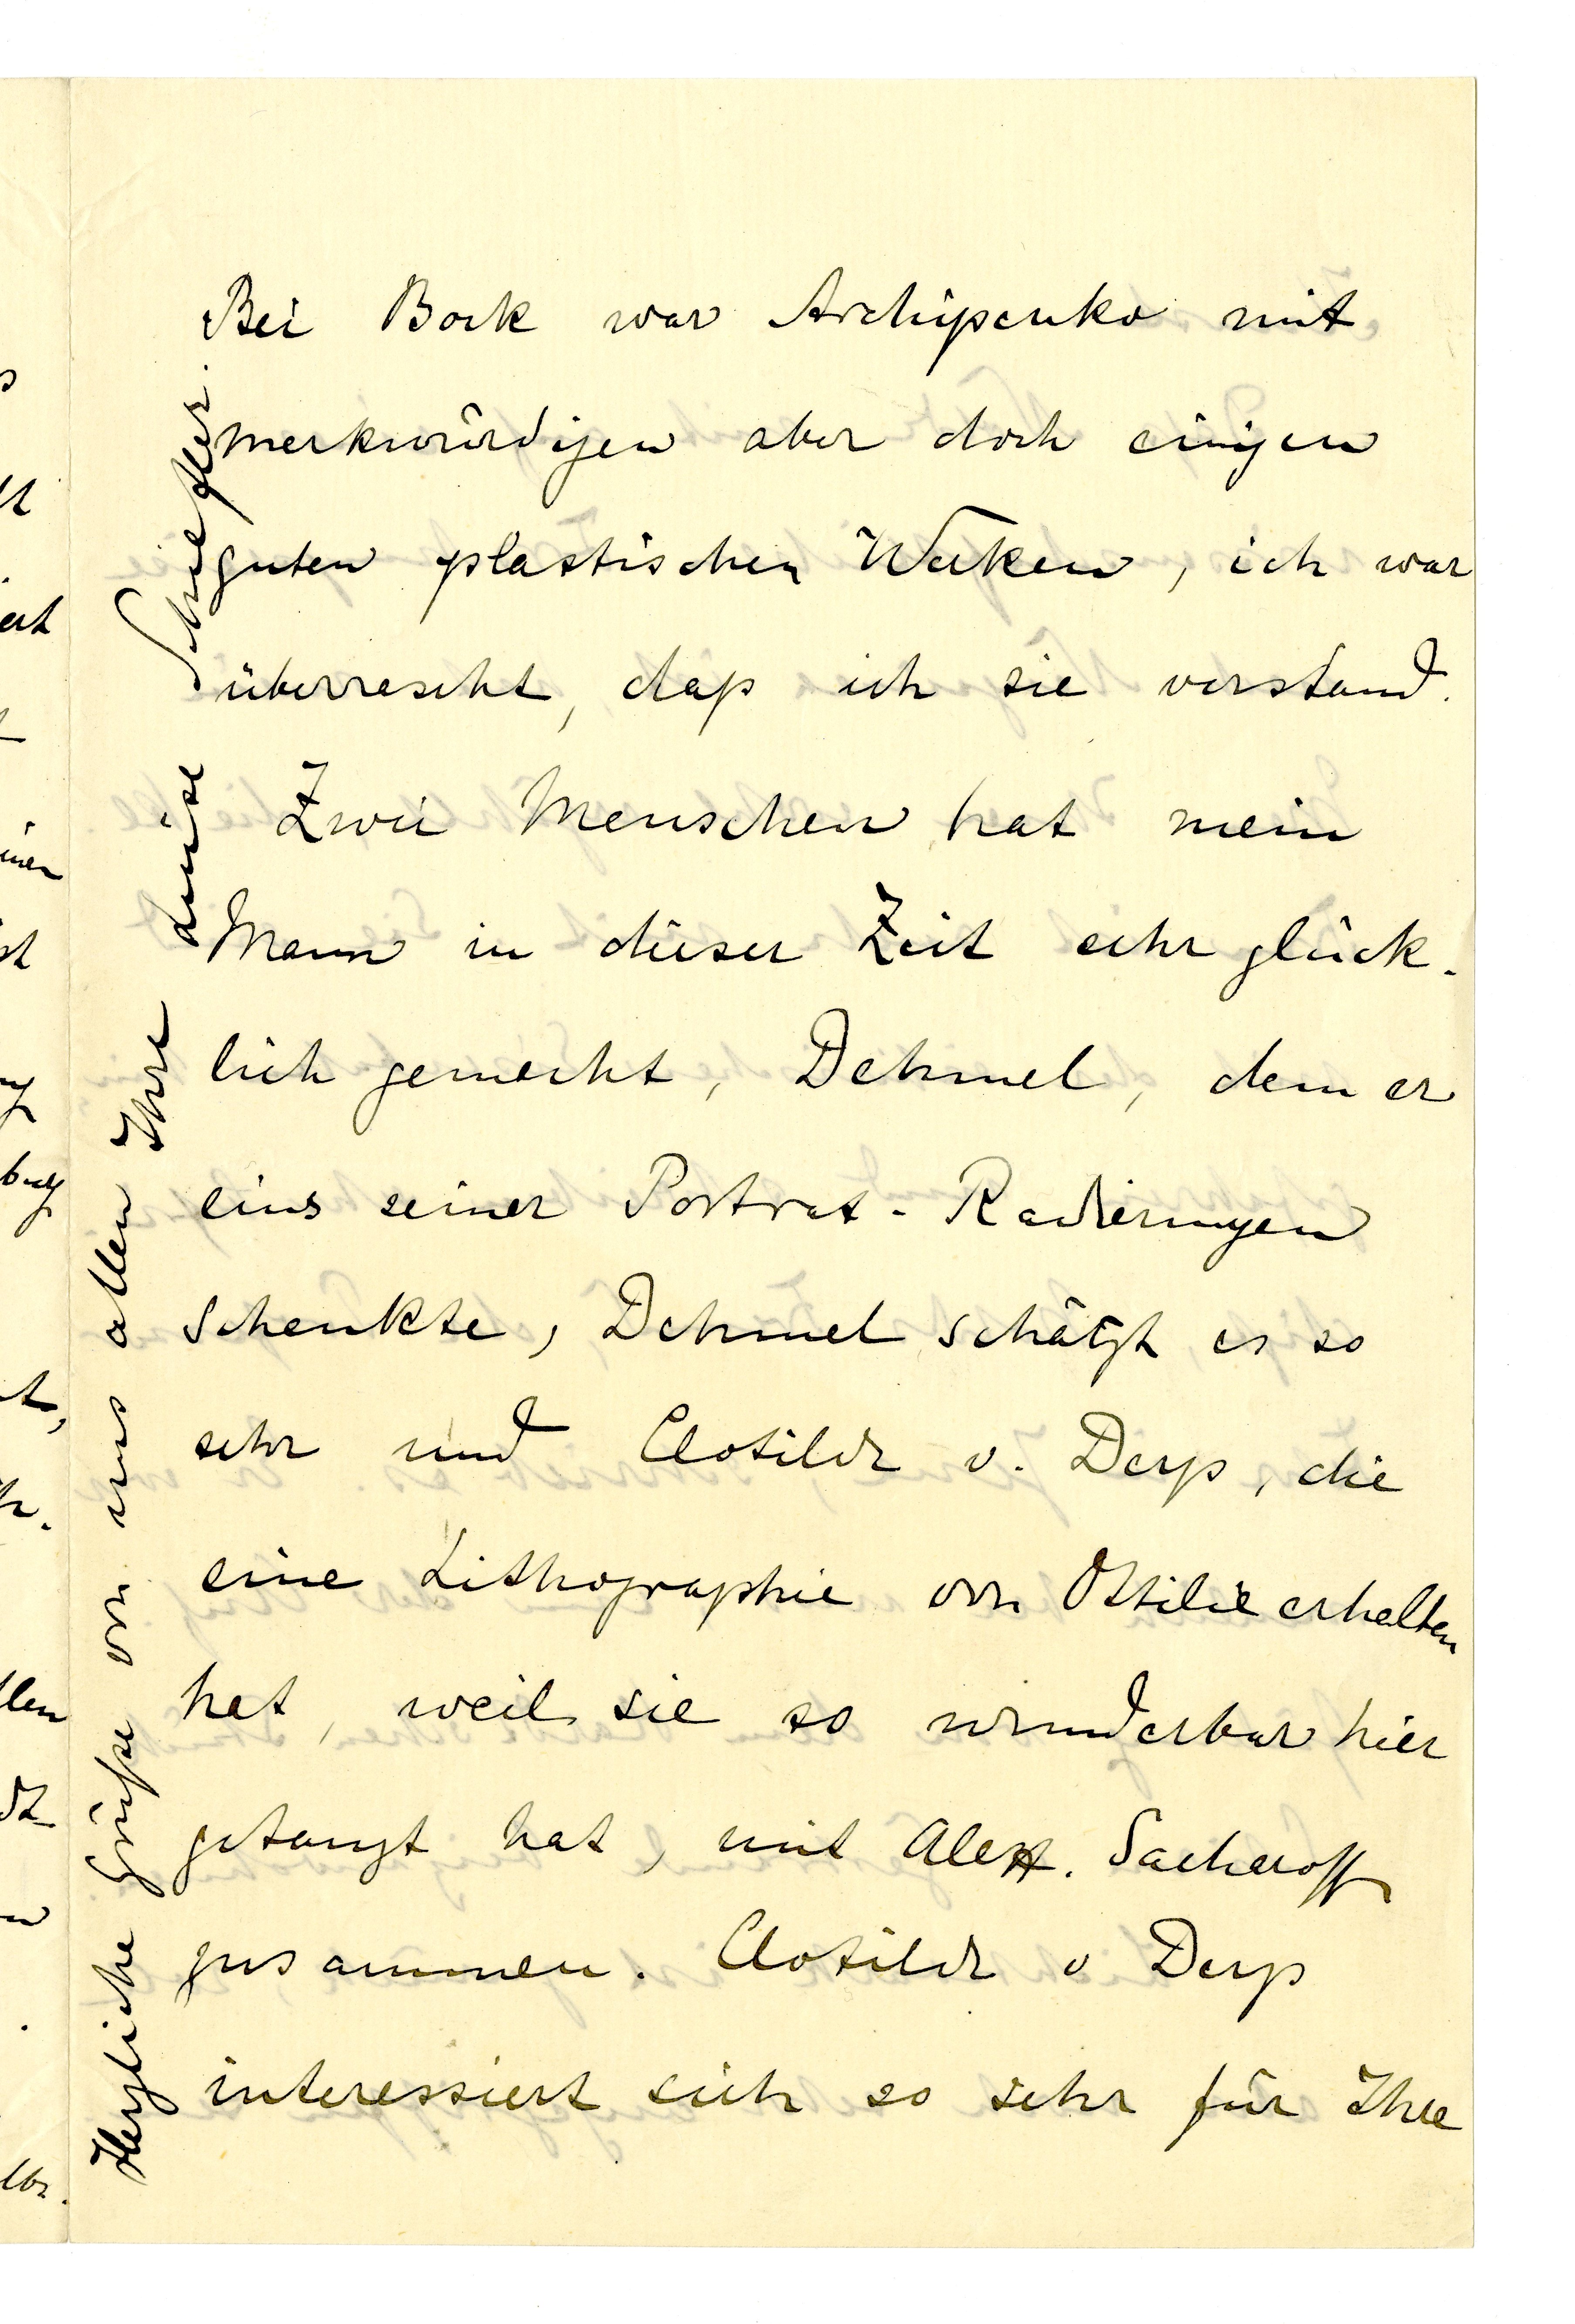 Bei Bock war Archipenko mit
merkwürdigen aber doch einigen
guten plastischen Werken, ich war
überrascht, daß ich sie verstand.
Zwei Menschen hat mein
Mann in dieser Zeit sehr glück-
lich gemacht, Dehmel, dem er
eins seiner Portrat-Radierungen
schenkte, Dehmel schätzt es so
sehr und Clotilde v. Derp, die
eine Lithographie von Ottilie erhalten
hat, weil sie so wunderbar hier
getanzt hat, mit Alex. Sacharoff
zusammen. Clotilde v Derp
interessiert sich so sehr für Ihre
Herzliche Grüße von uns allen Ihre
Luise Schiefler.